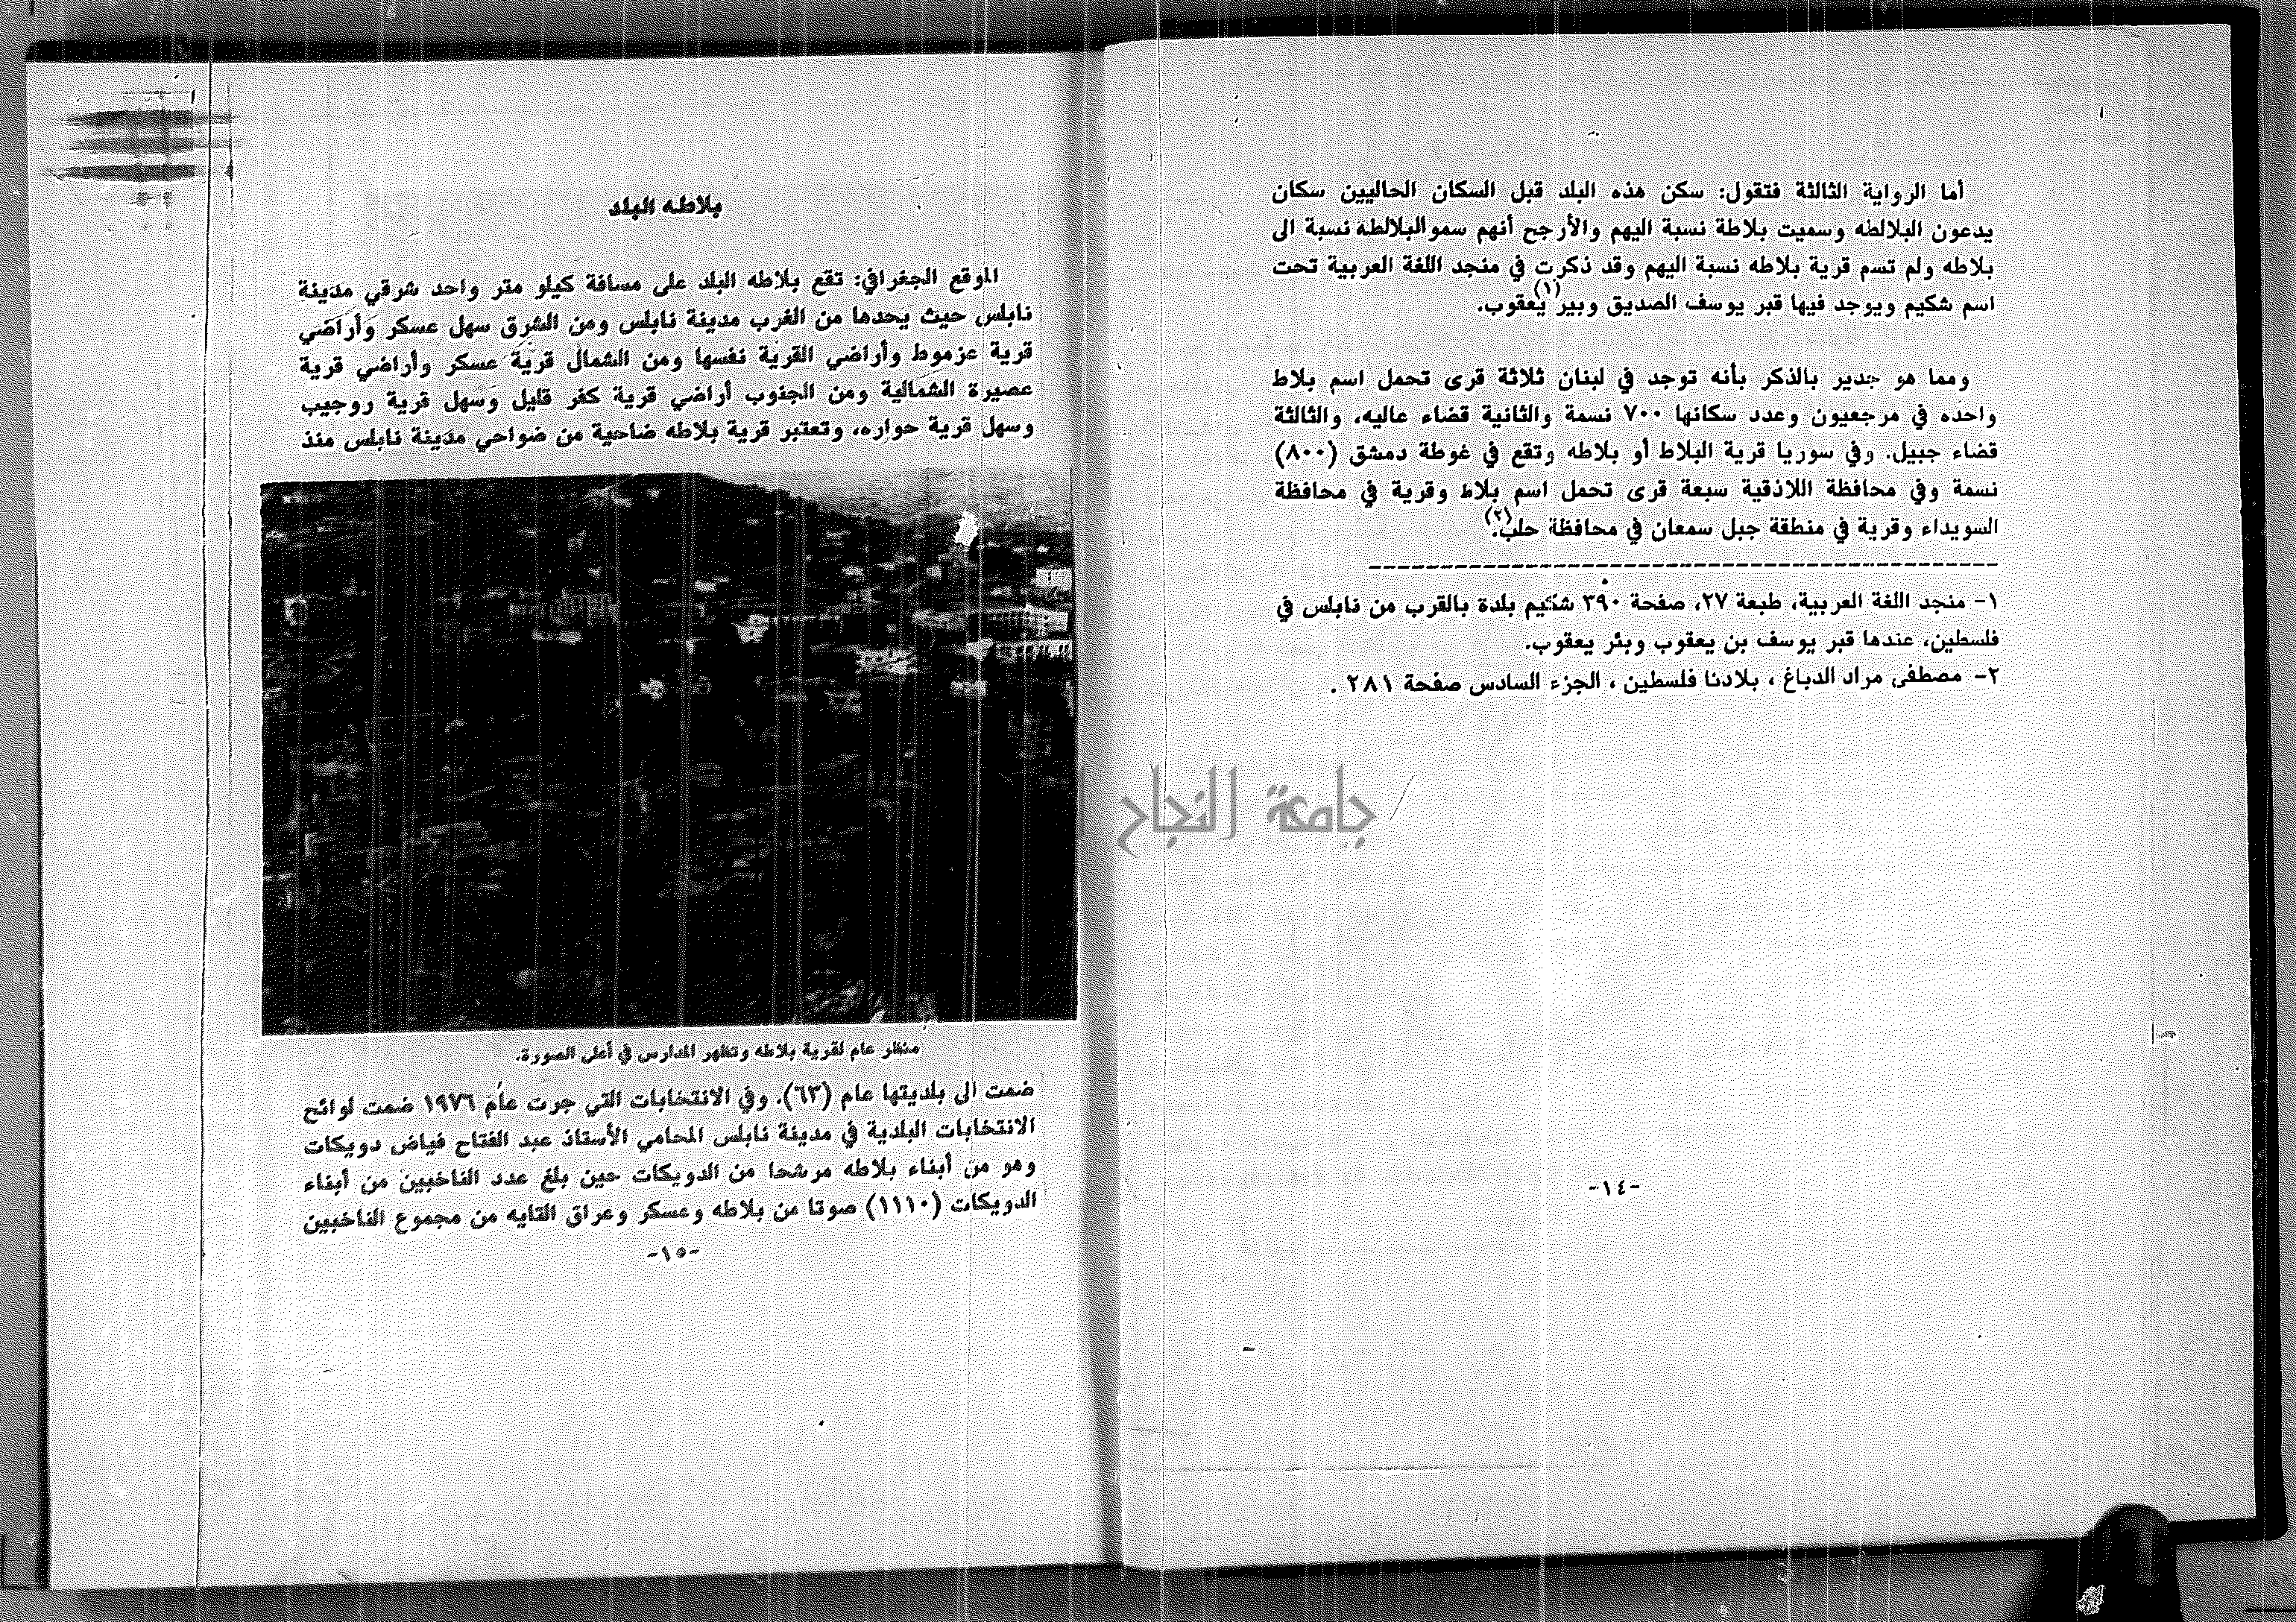 أما الرواية الثالثة فتقول: سكن هذه البلد قبل السكان الحاليين سكان
يدعون البلالطه وسميت بلاطة نسبة اليهم والأرجح أنهم سمو البلالطه نسبة الى
بلاطه ولم تسم قرية بلاطه نسبة اليهم وقد ذكرت في منجد اللغة العربية تحت
اسم شكيم ويوجد فيها قبر يوسف الصديق وبير (١) يعقوب.
ومما هو جدير بالذكر بأنه توجد في لبنان ثلاثة قرى تحمل اسم بلاط
واحده في مرجعيون وعدد سكانها ٧٠٠ نسمة والثانية قضاء عاليه، والثالثة
قضاء جبيل. وفي سوريا قرية البلاط أو بلاطه وتقع في غوطة دمشق (٨٠٠)
نسمة وفي محافظة اللاذقية سبعة قرى تحمل اسم بلاط وقرية في محافظة
السويداء وقرية في منطقة جبل سمعان في محافظة حلب(٢).
١- منجد اللغة العربية، طبعة ٢٧، صفحة ٣٩٠ شكيم بلدة بالقرب من نابلس في
فلسطين، عندها قبر يوسف بن يعقوب وبئر يعقوب.
٢- مصطفى مراد الدباغ ، بلادنا فلسطين ، الجزء السادس صفحة ٢٨١ .
جامعة النجاح
-١٤-
بلاطه البلد
الموقع الجغرافي: تقع بلاطه البلد على مسافة كيلو متر واحد شرقي مدينة
نابلس حيث يحدها من الغرب مدينة نابلس ومن الشرق سهل عسكر وأراضي
قرية عزموط وأراضي القرية نفسها ومن الشمال قرية عسكر وأراضي قرية
عصيرة الشمالية ومن الجنوب أراضي قرية كفر قليل وسهل قرية روجيب
وسهل قرية حواره، وتعتبر قرية بلاطه ضاحية من ضواحي مدينة نابلس منذ
منظر عام لقرية بلاطه وتظهر المدارس في أعلى الصورة.
ضمت الى بلديتها عام (٦٣). وفي الانتخابات التي جرت عام ١٩٧٦ ضمت لوائح
الانتخابات البلدية في مدينة نابلس المحامي الأستاذ عبد الفتاح فياض دويكات
وهو من أبناء بلاطه مرشحا من الدويكات حين بلغ عدد الناخبين من أبناء
الدويكات (١١١٠) صوتا من بلاطه وعسكر وعراق التايه من مجموع الناخبين
-١٥-